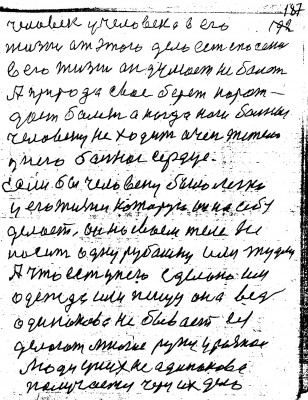 187
человек у человека в его 192
жизни от этого дело есть
в его жизни он думает не болит
А природа свое берет
болит а когда ноги больные
человеку не ходит
у него больное сердце.
Если бы человеку было легко
у его жизни которую он на себя
делает, он на своем теле не
носит одну рубашку или
А что есть у него сделано им
одежда или пищу она вед
одинаково не бывает ей
делают многое руки у разное
Люди у них не одинаково
получается через их дело